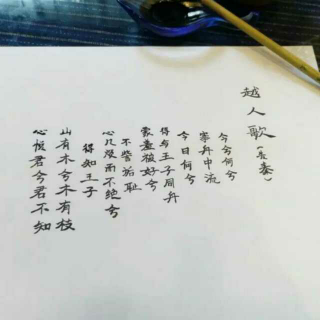 越人歌(先秦)
今夕何兮
搴舟中流
今日何兮
得与王子同舟
蒙羞被好兮
不訾诟耻
心几烦而不绝兮
得知王子
山有木兮木有枝
心悦君兮君不知